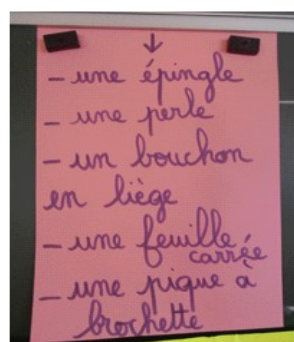 ↓
- une épingle
- une perle
- un bouchon
en liège
- une feuille
carrée
- une pique à
brochette